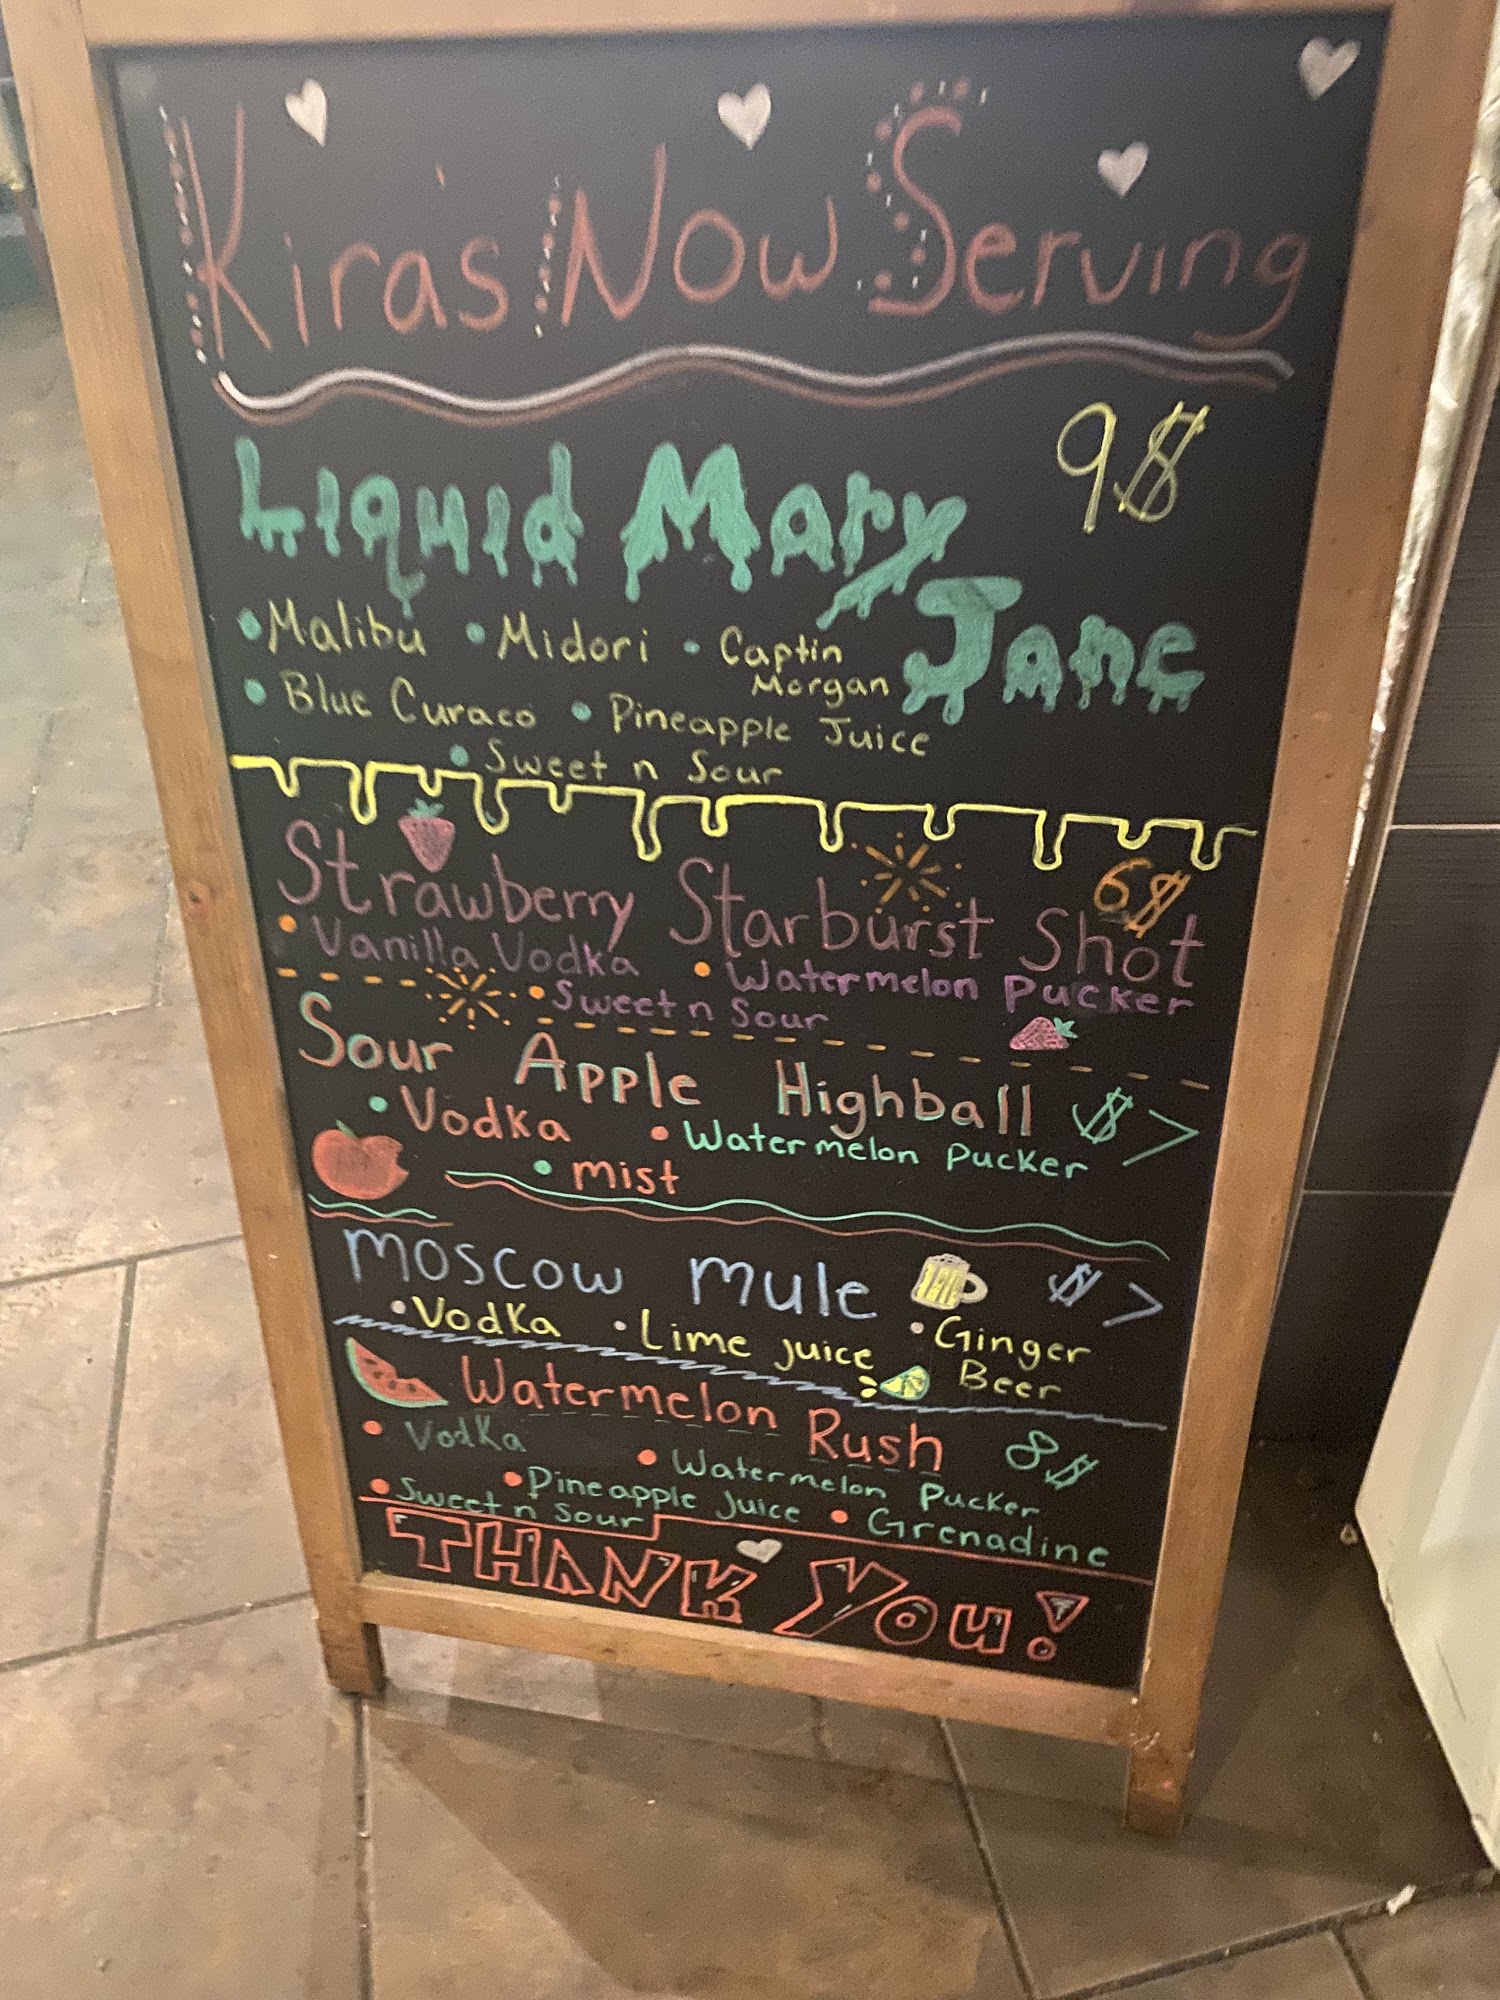 Kira's Now Serving
9$
Liquid Mary
Jane
•Malibu •Midori •Captin
Morgan
•Blue Curaco •Pineapple Juice
•Sweet n Sour
6$
Strawberry Starburst Shot
•Vanilla Vodka •Watermelon Pucker
•Sweet n Sour
Sour Apple Highball $7
•Vodka •Watermelon Pucker
•mist
moscow mule $7
•Vodka •Lime juice •Ginger
Beer
Watermelon Rush 8$
•Vodka •Watermelon Pucker
•Sweet n Sour •Pineapple Juice •Grenadine
THANK You!